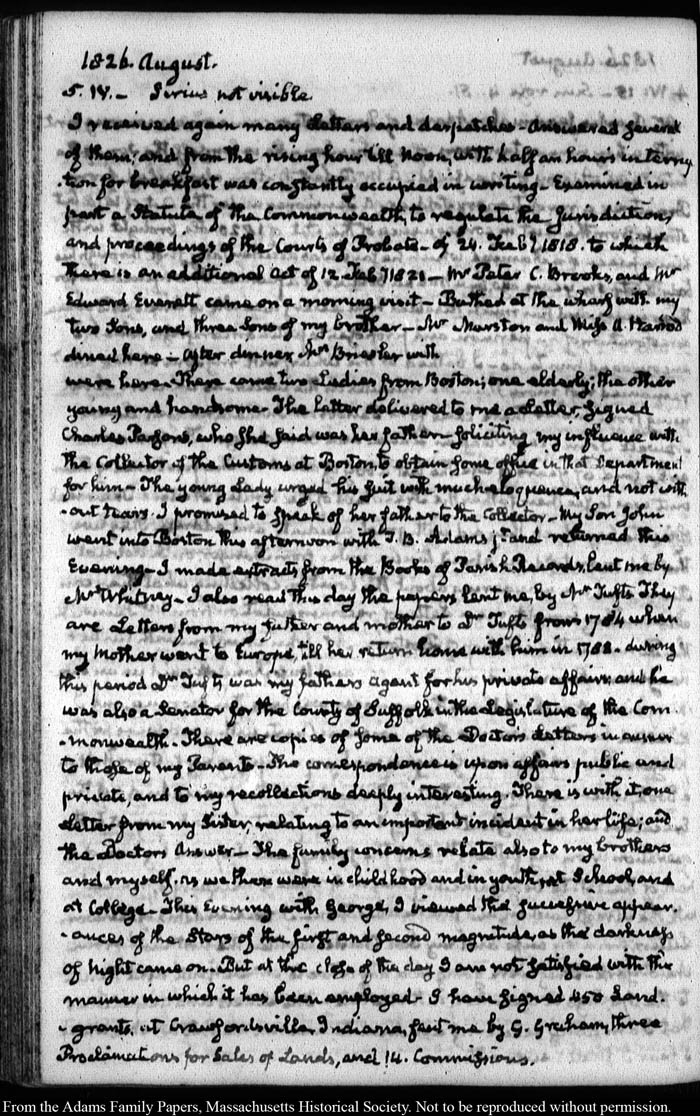 1826. August.
5. IV. – Sirius not visible.
I received again many Letters and despatches – Answered several
of them; and from the rising hour till Noon, with half an hour's interrup-
-tion for breakfast was constantly occupied in writing – Examined in
part a Statute of the Commonwealth, to regulate the Jurisdiction,
and proceedings of the Courts of Probate – of 24. Feby 1818. to which
there is an additional Act of 12. Feby 1821 – Mr Peter C. Brooks, and Mr
Edward Everett came on a morning visit – Bathed at the wharf with my
two Sons, and three Sons of my brother – Mr Marston and Miss A. Harrod
dined here – After dinner Mrs with
were here – There came two Ladies from Boston; one elderly; the other
young and handsome – The latter delivered to me a Letter, signed
Charles Parsons, who she said was her father – soliciting my influence with
the Collector of the Customs at Boston, to obtain some office in that Department
for him – The young Lady urged his suit with much eloquence, and not with-
-out tears. I promised to speak of her father to the Collector – My Son John
went into Boston this afternoon with T. B. Adams jr and returned this
Evening – I made extracts from the Books of Parish Records, lent me by
Mr Whitney – I also read this day the papers lent me, by Mr Tufts They
are Letters from my father and mother to Dr Tufts from 1784 when
my Mother went to Europe, till her return home with him in 1788. during
this period Dr Tufts was my father's agent for his private affairs, and he
was also a Senator for the County of Suffolk in the Legislature of the Com-
-monwealth – There are copies of some of the Doctors Letters in answer
to those of my Parents – The correspondence is upon affairs public and
private, and to my recollections deeply interesting. There is with it, one
Letter from my Sister, relating to an important incident in her life; and
the Doctors Answer – The family concerns relate also to my brothers
and myself; as we then were in childhood and in youth, at School, and
at College – This Evening with George, I viewed the successive appear-
-ances of the Stars of the first and second magnitude, as the darkness
of Night came on – But at the close of the day I am not satisfied with the
manner in which it has been employed – I have signed 450 Land-
-grants, at Crawfordsville, Indiana, sent me by G. Graham, three
Proclamations for Sales of Lands, and 14. Commissions.
From the Adams Family Papers, Massachusetts Historical Society. Not to be reproduced without permission.